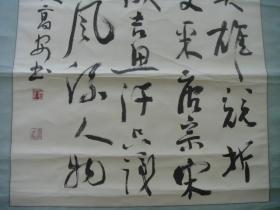 英雄竞折
文采唐宗宋
成吉思汗只识
风流人物
高安书